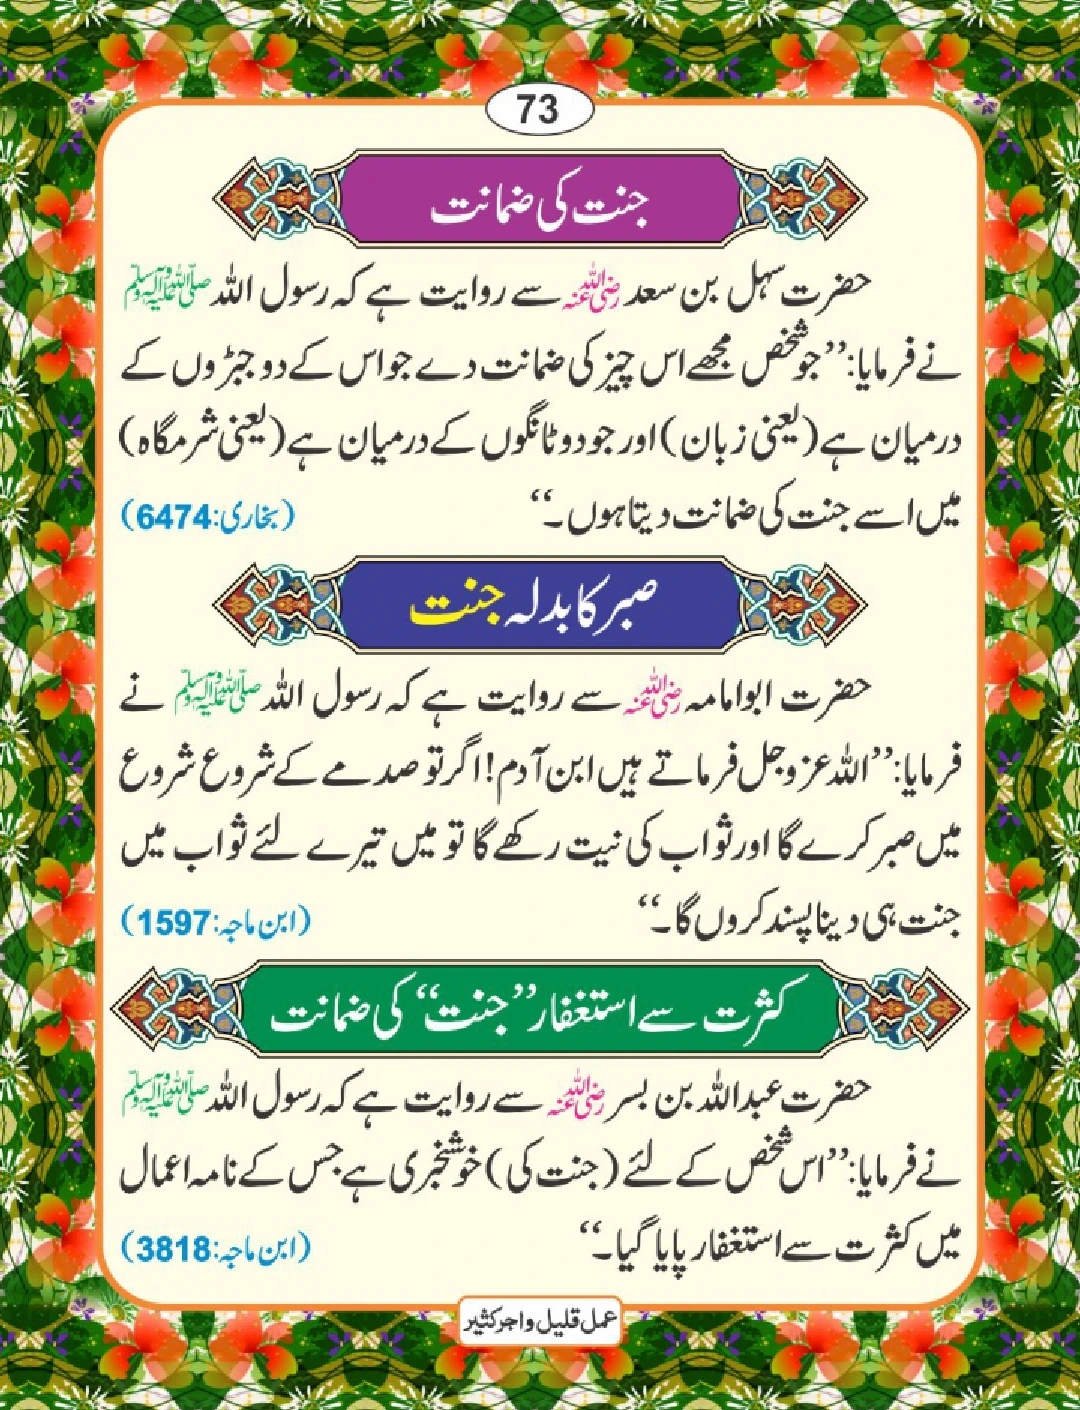 73
جنت کی ضمانت
حضرت سہل بن سعد رضی اللہ عنہ سے روایت ہے کہ رسول اللہ صلی اللہ علیہ وآلہ وسلم
نے فرمایا: ’’جو شخص مجھے اس چیز کی ضمانت دے جو اس کے دو جبڑوں کے
درمیان ہے (یعنی زبان) اور جو دو ٹانگوں کے درمیان ہے (یعنی شرمگاہ)
میں اسے جنت کی ضمانت دیتا ہوں۔‘‘ (بخاری: 6474)
صبر کا بدلہ جنت
حضرت ابوامامہ رضی اللہ عنہ سے روایت ہے کہ رسول اللہ صلی اللہ علیہ وآلہ وسلم نے
فرمایا: ’’اللہ عزوجل فرماتے ہیں ابن آدم! اگر تو صدمے کے شروع شروع
میں صبر کرے گا اور ثواب کی نیت رکھے گا تو میں تیرے لئے ثواب میں
جنت ہی دینا پسند کروں گا۔‘‘ (ابن ماجہ: 1597)
کثرت سے استغفار ’’جنت‘‘ کی ضمانت
حضرت عبداللہ بن بسر رضی اللہ عنہ سے روایت ہے کہ رسول اللہ صلی اللہ علیہ وآلہ وسلم
نے فرمایا: ’’اس شخص کے لئے (جنت کی) خوشخبری ہے جس کے نامہ اعمال
میں کثرت سے استغفار پایا گیا۔‘‘ (ابن ماجہ: 3818)
عمل قلیل و اجر کثیر